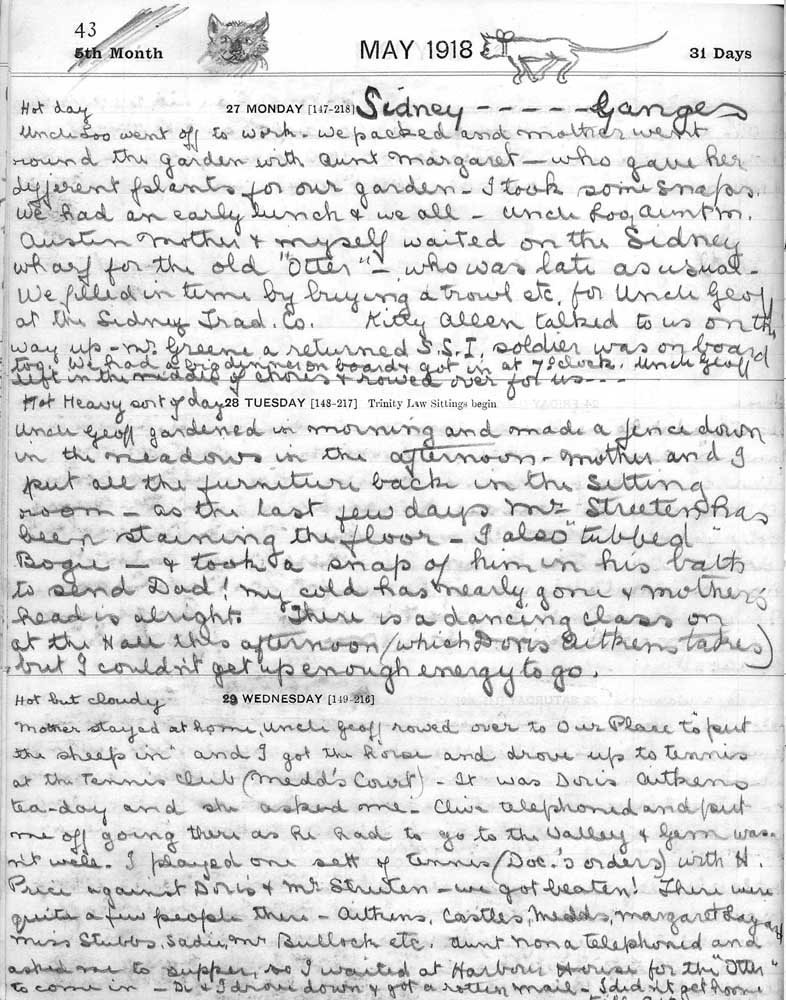 43
5th Month MAY 1918 31 Days
Hot day 27 MONDAY [147-218] Sidney - - - - - Ganges
Uncle Loo went off to work. We packed and mother went
round the garden with Aunt Margaret — who gave her
different plants for our garden - I took some snaps.
We had an early lunch & we all - Uncle Loo, Aunt M.
Austin Mother & myself waited on the Sidney
wharf for the old "Otter" - who was late as usual -
We filled in time by buying a trowl etc. for Uncle Geoff
at the Sidney Trad. Co. Kitty Allen talked to us on the
way up - Mr. Greene a returned S.S.I. soldier was on board
too. We had a big dinner on board & got in at 7 o'clock. Uncle Geoff
left in the middle of chores & rowed over for us - - -
Hot Heavy sort of day 28 TUESDAY [148-217] Trinity Law Sittings begin
Uncle Geoff gardened in morning and made a fence down
in the meadows in the afternoon - Mother and I
put all the furniture back in the sitting
room - as the last few days Mr Streeten has
been staining the floor - I also "tubbed"
Bogie — & took a snap of him in his bath
to send Dad! My cold has nearly gone & mothers
head is alright. There is a dancing class on
at the Hall this afternoon (which Doris Aitkens takes)
but I couldn't get up enough energy to go.
Hot but cloudy 29 WEDNESDAY [149-216]
Mother stayed at home, Uncle Geoff rowed over to Our Place to "put
the sheep in" and I got the horse and drove up to tennis
at the Tennis Club (Medd's Court) - It was Doris Aitkens
tea-day and she asked me - Clive telephoned and put
me off going there as he had to go to the Valley & Gem was-
n't well. I played one sett of tennis (Doc.'s orders) with H.
Price against Doris & Mr Streeten - we got beaten! There were
quite a few people there - Aitkens, Castles, Medds, Margaret
Miss Stubbs, Sadie, Mr Bullock etc. Aunt Nona telephoned and
asked me to supper, so I waited at Harbour House for the "Otter"
to come in — Di & I drove down & got a rotten mail - I didn't get home